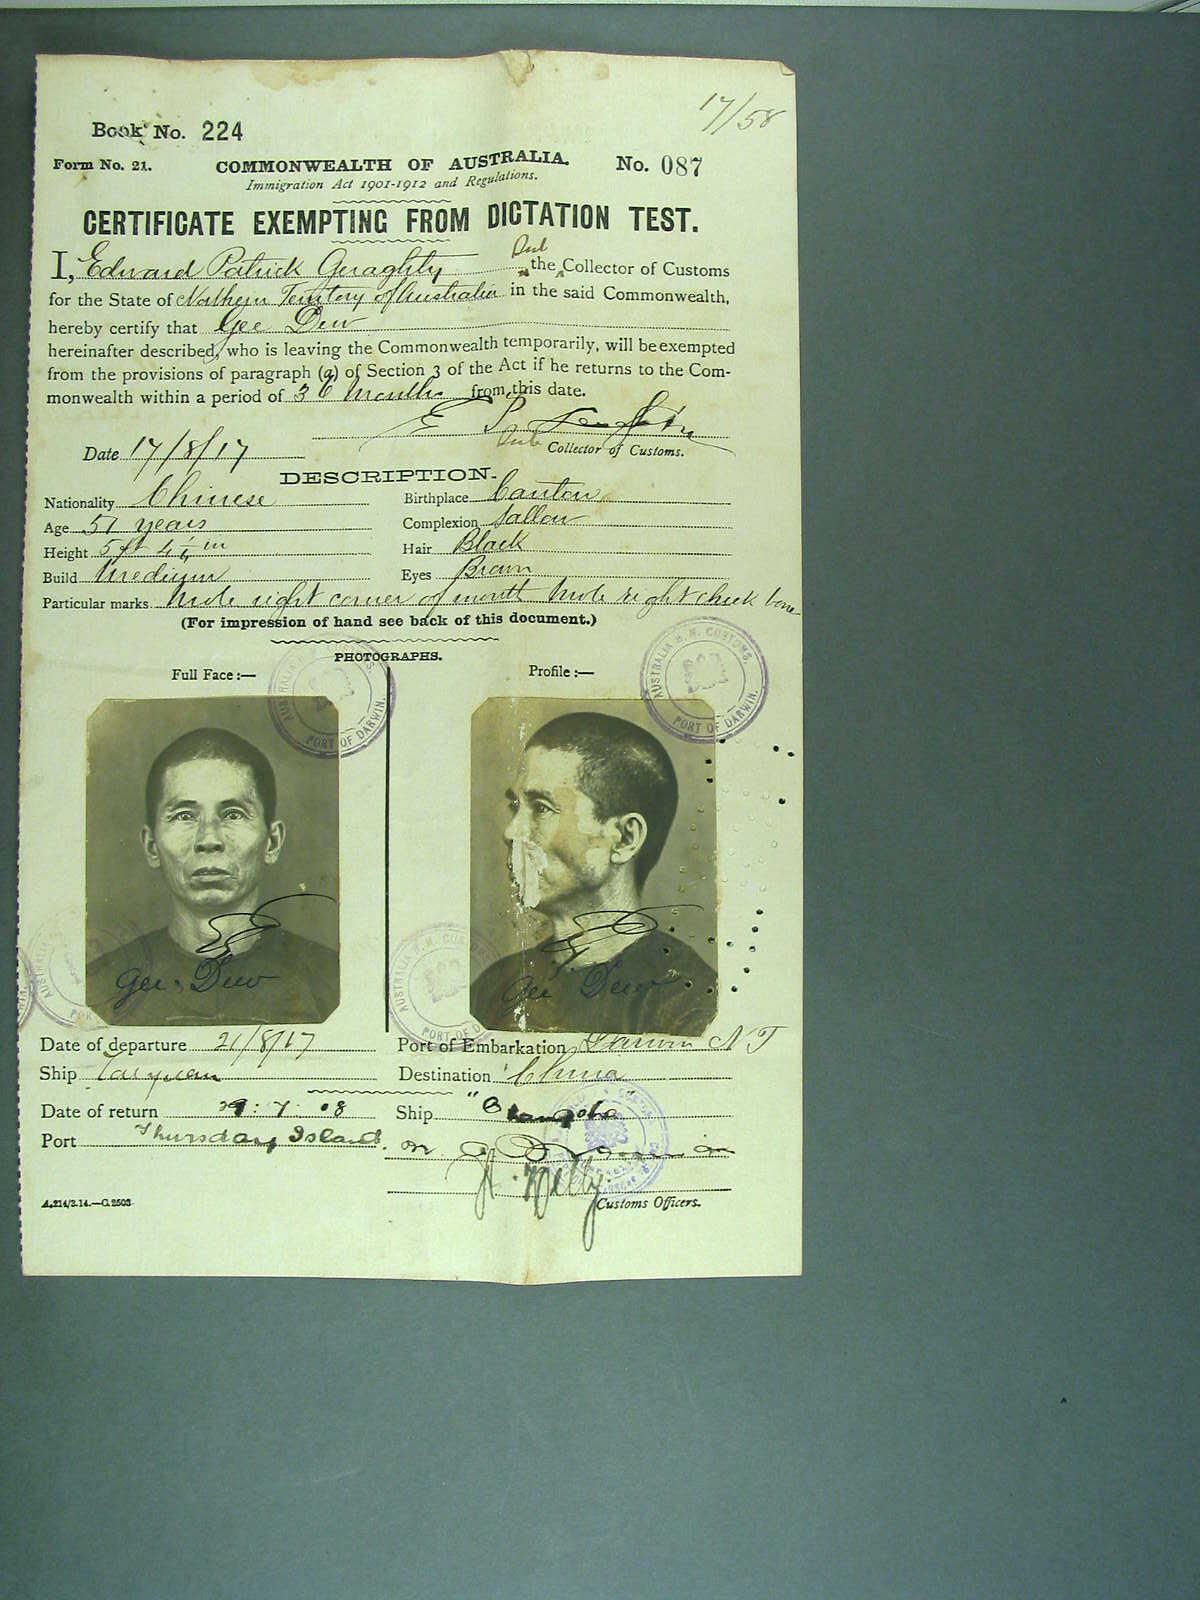 17/58
Book No. 224
Form No. 21. COMMONWEALTH OF AUSTRALIA. No. 087
Immigration Act 1901-1912 and Regulations.
CERTIFICATE EXEMPTING FROM DICTATION TEST.
I, Edward Patrick Geraghty the Sub Collector of Customs
for the State of Northern Territory of Australia in the said Commonwealth,
hereby certify that Gee Dew
hereinafter described, who is leaving the Commonwealth temporarily, will be exempted
from the provisions of paragraph (a) of Section 3 of the Act if he returns to the Com-
monwealth within a period of 36 Months from this date.
Date 17/8/17 Sub Collector of Customs.
DESCRIPTION.
Nationality Chinese Birthplace Canton
Age 51 years Complexion Sallow
Height 5 ft 4 in Hair Black
Build Medium Eyes Brown
Particular marks Mole right corner of mouth Mole right cheek bone
(For impression of hand see back of this document.)
PHOTOGRAPHS.
Full Face:— Profile:—
AUSTRALIA H.M. CUSTOMS. PORT OF DARWIN.
Gee Dew Gee Dew
Date of departure 21/8/17 Port of Embarkation Darwin NT
Ship Taiyuan Destination China
Date of return Ship
Port Thursday Island.
Kelly
A.214/3.14.—C.2503 Customs Officers.